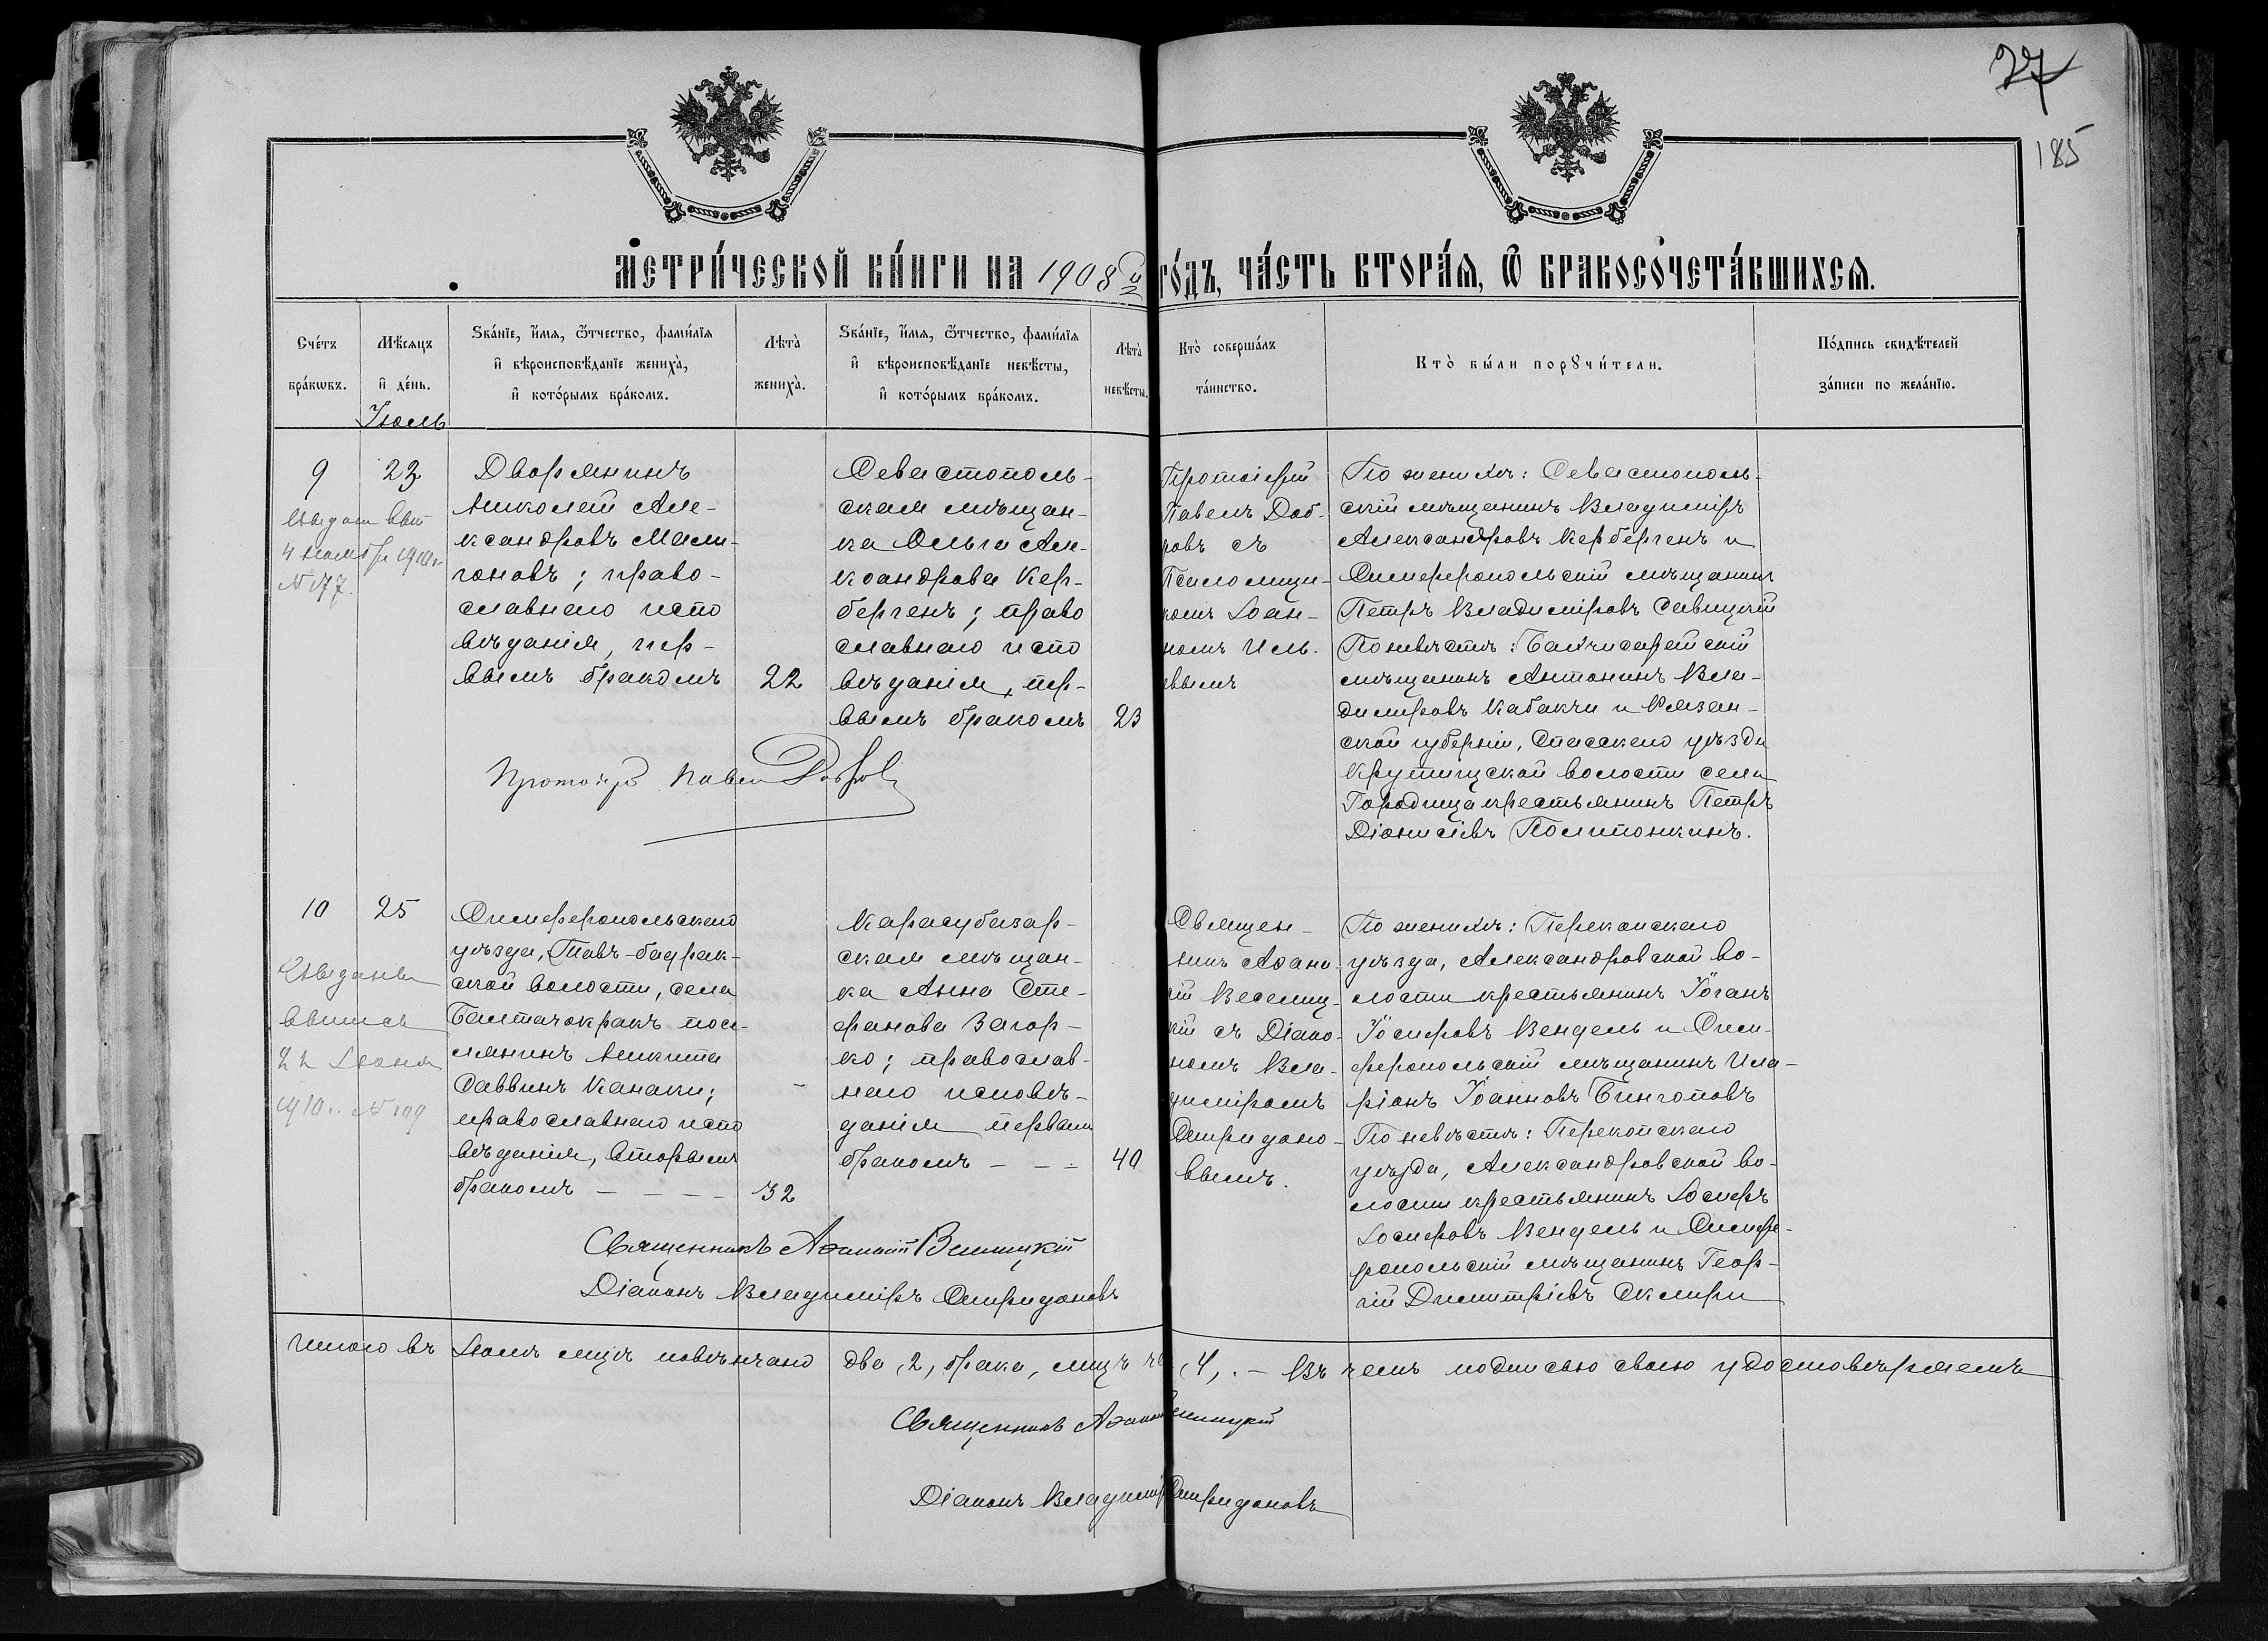 27
185
МЕТРИ́ЧЕСКОЙ КНИ́ГИ НА 1908й ГО́ДЪ, ЧА́СТЬ ВТОРА́Я, Ѿ БРАКОСОЧЕТА́ВШИХСЯ.
Сче́тъ бра́кωвъ.
Мѣ́сяцъ и де́нь.
Ѕва́нїе, и́мя, ѻ́тчество, фами́лїя
и вѣроисповѣ́данїе жениха̀,
и кото́рымъ бра́комъ.
Лѣта̀ жениха̀.
Ѕва́нїе, и́мя, ѻ́тчество, фами́лїя
и вѣроисповѣ́данїе невѣ́сты,
и кото́рымъ бра́комъ.
Лѣта̀ невѣ́сты.
Кто̀ соверша́лъ
та́инство.
Кто̀ бы́ли порꙋчи́тели.
По́дпись свидѣ́телей
за́писи по жела́нїю.
Іюль
9
23
4 ноября 1910 г.
№ 177.
Дворянинъ
Николай Але-
ксандровъ Мали-
гоновъ; право-
славнаго испо
вѣданія, пер-
вымъ бракомъ
22
Севастополь-
ская мѣщан-
ка Ольга Але-
ксандрова Кер-
бергенъ; право
славнаго испо
вѣданія, пер-
вымъ бракомъ
23
Протоіерей
Павелъ Доб-
ровъ съ
Псаломщи-
комъ Іоан-
номъ Иль-
евымъ
По женихѣ: Севастополь-
скій мѣщанинъ Владиміръ
Александровъ Кербергенъ и
Симферопольскій мѣщанинъ
Петръ Владиміровъ Савицкій
По невѣстѣ: Бахчисарайскій
мѣщанинъ Антонинъ Вла-
димировъ Кабакчи и Рязан-
ской губерніи, Спасскаго уѣзда
Крутицской волости села
Городища крестьянинъ Петръ
Діонисіевъ Политонкинъ.
Протоіерей Павелъ Добровъ
10
25
22 Іюня
1910 г. № 109
Симферопольскаго
уѣзда, Тавъ-бадрак-
ской волости, села
Балтачокракъ посе-
лянинъ Никита
Саввинъ Канаки;
православнаго испо
вѣданія, вторымъ
бракомъ - - - -
32
Карасубазар-
ская мѣщан-
ка Анна Сте-
фанова Загор-
ко; православ-
наго исповѣ-
данія первымъ
бракомъ - - -
40
Священ-
никъ Аѳана-
сій Веселиц-
кій съ Діако-
номъ Вла-
диміромъ
Спиридоно-
вымъ.
По женихѣ: Перекопскаго
уѣзда, Александровской во-
лости крестьянинъ Іоганъ
Іосифовъ Вендель и Сим-
феропольскій мѣщанинъ Ила-
ріонъ Іоанновъ Бингоповъ
По невѣстѣ: Перекопскаго
уѣзда, Александровской во-
лости крестьянинъ Іосифъ
Іосифовъ Вендель и Симфе-
ропольскій мѣщанинъ Геор-
гій Димитріевъ Скляри
Священникъ Аѳанасій Веселицкій
Діаконъ Владиміръ Спиридоновъ
Итого въ Іюлѣ мцѣ повѣнчано два, 2, брака, лицъ 4,. - Въ чемъ подписью своею удостовѣряемъ
Священникъ Аѳанасій Веселицкій
Діаконъ Владиміръ Спиридоновъ